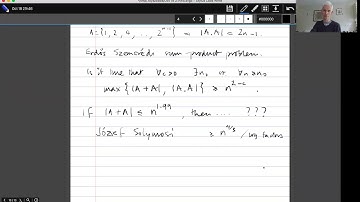 A = {1, 2, 4, ..., 2^{n-1}} ⇒ |A.A| = 2n-1.
Erdős Szemerédi sum-product problem.
Is it true that ∀ε>0 ∃n₀ st ∀n≥n₀
max {|A+A|, |A.A|} ≥ n^{2-ε}
If |A+A| ≤ n^{1.99}, then .... ???
József Solymosi ≥ n^{4/3} / log factors